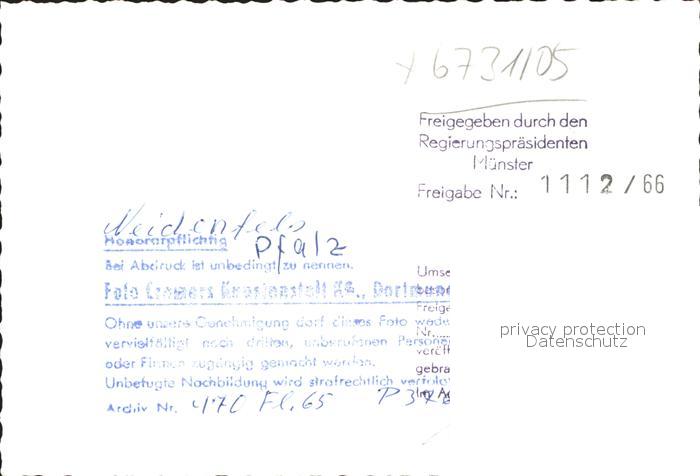 x 6731/05
Freigegeben durch den
Regierungspräsidenten
Münster
Freigabe Nr.: 1112/66
Neidenfels
Honorarpflichtig Pfalz
Bei Abdruck ist unbedingt zu nennen.
Foto Cramers Kunstanstalt KG., Dortmun
Ohne unsere Genehmigung darf dieses Foto wede
vervielfältigt noch dritten, unberufenen Persone
oder Firmen zugängig gemacht werden.
Unbefugte Nachbildung wird strafrechtlich verfolg
Archiv Nr. 470 Fl. 65
Umse
Freige
Nr.
veröff
gebra
privacy protection
Datenschutz